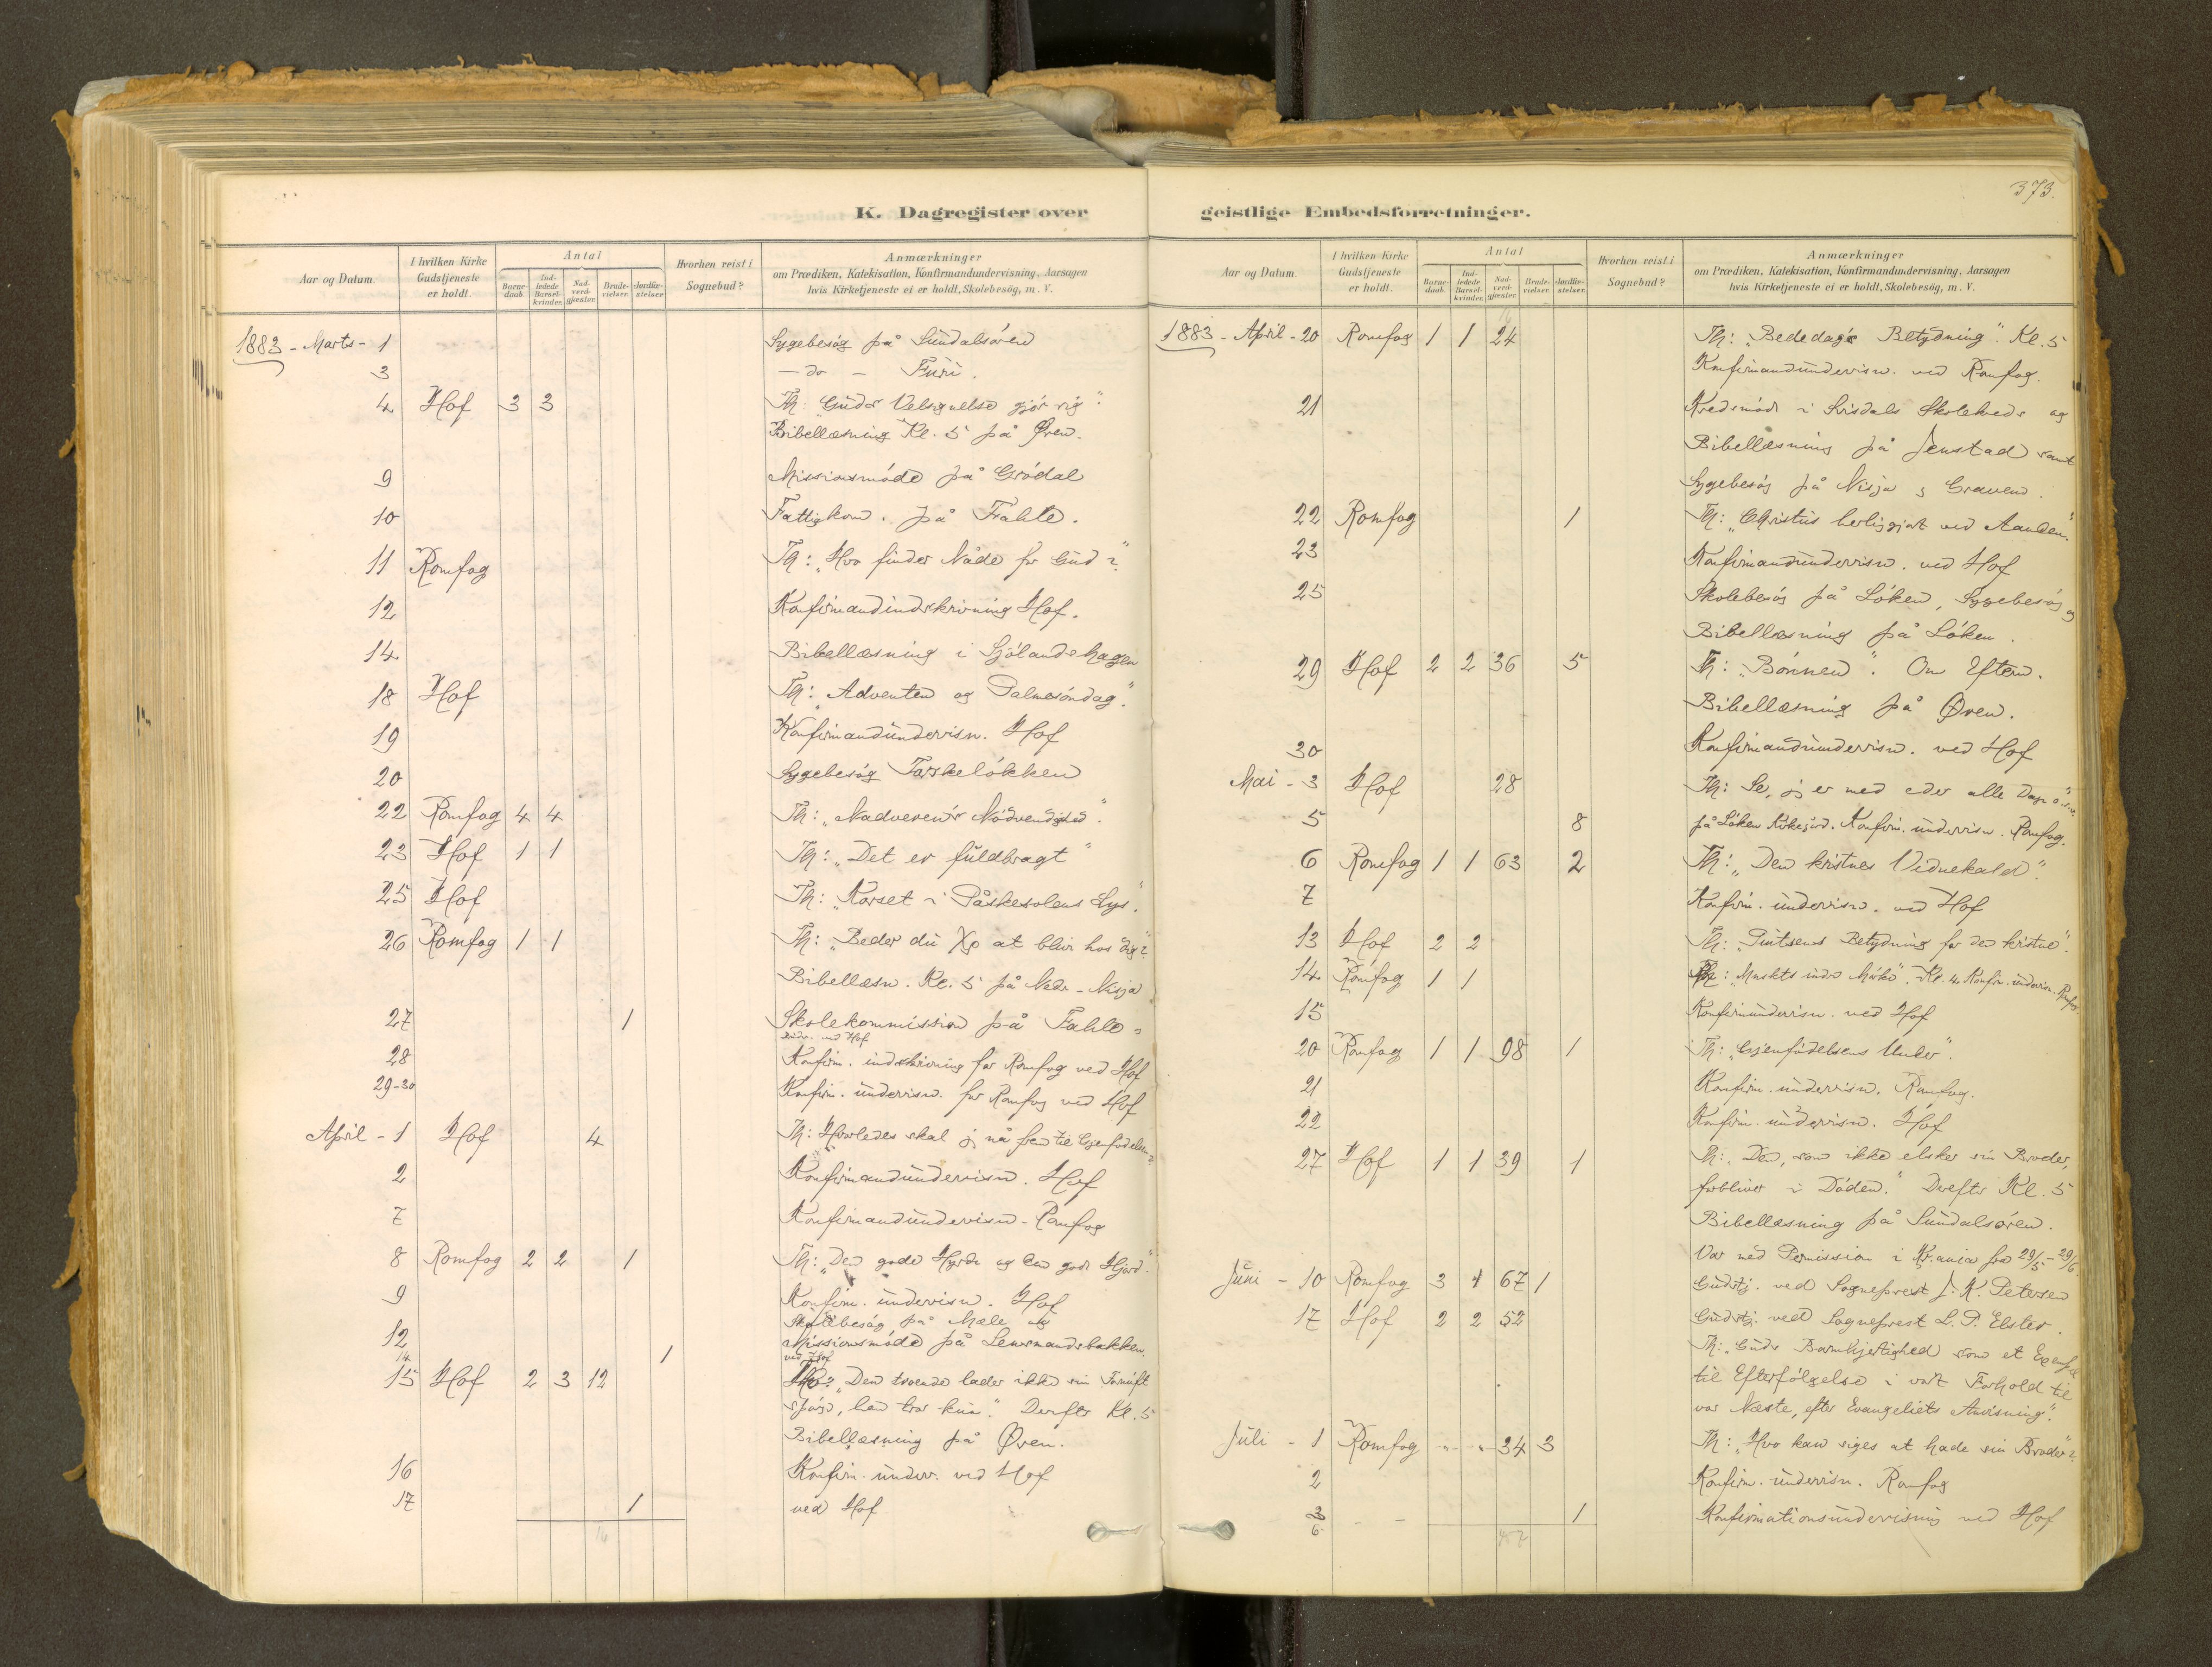 K. Dagregister over
Aar og Datum.
I hvilken Kirke Gudstjeneste er holdt.
Antal
Barne-daab.
Ind-ledede Barsel-kvinder.
Nad-verd-gjæster.
Brude-vielser.
Jordfæ-stelser.
Hvorhen reist i Sognebud?
Anmærkninger
om Prædiken, Katekisation, Konfirmandundervisning, Aarsagen
hvis Kirketjeneste ei er holdt, Skolebesög, m. V.
1883 - Marts - 1 Sygebesøg på Sundalsøren
3 - do - Furu.
4 Hof 3 3 Th: "Guds Velsignelse gjør rig".
Bibellæsning Kl. 5 på Øren.
9 Missionsmöde på Grödal
10 Fattigkom. på Fahle.
11 Romfog Th: "Hvo finder Nåde for Gud?"
12 Konfirmandindskrivning Hof.
14 Bibellæsning i Sjölandshagen
18 Hof Th: "Adventen og Palmesöndag".
19 Konfirmandundervisn. Hof
20 Sygebesøg Torskelökken
22 Romfog 4 4 Th: "Nadveren's Nödvendighed".
23 Hof 1 1 Th: "Det er fuldbragt"
25 Hof Th: "Korset i Påskesolens Lys".
26 Romfog 1 1 Th: "Beder du Xp at blive hos dig?"
Bibellæsn. Kl. 5 på Nedr-Nisja
27 1 Skolekommission på Fahle
ved Hof
28 Konfirm. indskrivning for Romfog ved Hof
29-30 Konfirm. undervisn. for Romfog ved Hof
April - 1 Hof 4 Th: Hvorledes skal jeg nå frem til Gjenfødelsen?
2 Konfirmandundervisn. Hof
7 Konfirmandundervisn - Romfog
8 Romfog 2 2 1 Th: "Den gode Hyrde og den gode Hjord".
9 Konfirm. undervisn. Hof
Skolebesøg på Mæle og
12 Missionsmöde på Lensmandsbakken.
14 1 ved Hof
15 Hof 2 3 12 Th: "Den troende lader ikke sin Fornuft
spörge, han tror kun." Derefter Kl. 5
Bibellæsning på Øren.
16 Konfirm. underv. ved Hof
17 1 ved Hof
16
373.
geistlige Embedsforretninger.
Aar og Datum.
I hvilken Kirke Gudstjeneste er holdt.
Antal
Barne-daab.
Ind-ledede Barsel-kvinder.
Nad-verd-gjæster.
Brude-vielser.
Jordfæ-stelser.
Hvorhen reist i Sognebud?
Anmærkninger
om Prædiken, Katekisation, Konfirmandundervisning, Aarsagen
hvis Kirketjeneste ei er holdt, Skolebesög, m. V.
1883 - April - 20 Romfog 1 1 24 Th: "Bededag's Betydning". Kl. 5
Konfirmandundervisn. ved Romfog.
21 Kredsmöde i Svisdals Skolekreds og
Bibellæsning på Jenstad samt
Sygebesøg på Nisja & Gravem.
22 Romfog 1 Th: "Christus herliggjort ved Aanden".
23 Konfirmandundervisn. ved Hof
25 Skolebesøg på Löken, Sygebesøg og
Bibellæsning på Löken.
29 Hof 2 2 36 5 Th: "Bönnen". Om Efterm.
Bibellæsning på Øren.
30 Konfirmandundervisn. ved Hof
Mai - 3 Hof 28 Th: Se, jeg er med eder alle Dage
5 8 på Löken Kirkegård. Konfirm. undervisn. Romfog.
6 Romfog 1 1 63 2 Th: "Den kristnes Vidnekald".
7 Konfirm. undervisn. ved Hof
13 Hof 2 2 Th: "Pintsens Betydning for den kristne".
14 Romfog 1 1 Th: "Mørkets indre Mørke". Kl. 4 Konfirm. undervisn. Romfog
15 Konfirmundervisn. ved Hof
20 Romfog 1 1 98 1 Th: "Gjenfödelsens Under".
21 Konfirm. undervisn. Romfog.
22 Konfirm. undervisn. Hof
27 Hof 1 1 39 1 Th: "Den, som ikke elsker sin Broder,
forbliver i Döden." Derefter Kl. 5
Bibellæsning på Sundalsøren.
Var med Permission i Kr.ania fra 29/5 - 29/6.
Juni - 10 Romfog 3 4 67 1 Gudstj. ved Sogneprest J. K. Petersen
17 Hof 2 2 52 Gudstj. ved Sogneprest L. P. Elster.
Th: "Guds Barmhjertighed som et Exempel
til Efterfölgelse i vort Forhold til
vor Næste, efter Evangeliets Anvisning".
Juli - 1 Romfog - " - " - 34 3 Th: "Hvo kan siges at hade sin Broder"?
2 Konfirm. undervisn. Romfog
3 - - 1 Konfirmationsundervisning ved Hof
6